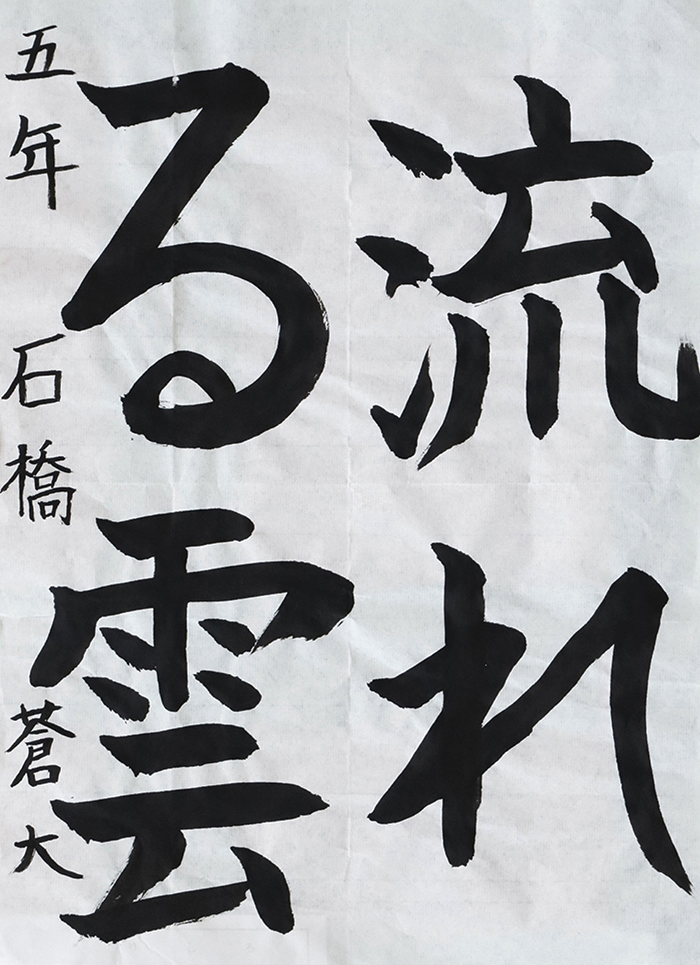 流れ
る雲
五年 石橋 蒼大